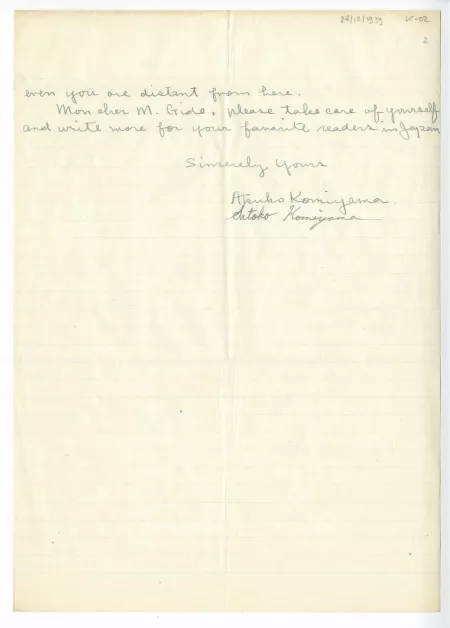 27/12/1939 K-02
2
even you are distant from here.
Mon cher M. Gide, please take care of yourself
and write more for your fanarite readers in Japan
Sincerely Yours
Atsuko Komiyama.
Satoko Komiyama